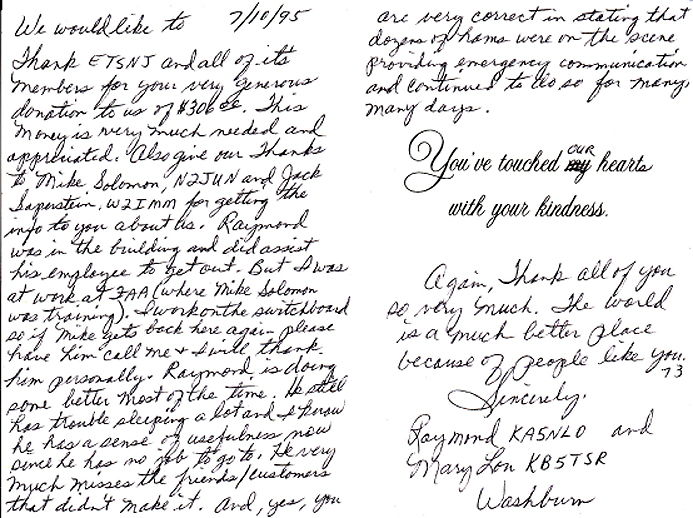 We would like to 7/10/95
Thank ETSNJ and all of its
members for your very generous
donation to us of $306.00. This
money is very much needed and
appreciated. Also give our Thanks
to Mike Solomon, N2JUN and Jack
Saperstein, W2IMM for getting the
info to you about us. Raymond
was in the building and did assist
his employee to get out. But I was
at work at FAA (where Mike Solomon
was training). I work on the switchboard
so if Mike gets back here again please
have him call me & I will thank
him personally. Raymond is doing
some better most of the time. He still
has trouble sleeping a lot and I know
he has a sense of usefulness now
since he has no job to go to. He very
much misses the friends/customers
that didn't make it. And, yes, you
are very correct in stating that
dozens of hams were on the scene
providing emergency communication
and continued to do so for many,
many days.
You've touched my OUR hearts
with your kindness.
Again, Thank all of you
so very much. The world
is a much better place
because of people like you.
73
Sincerely,
Raymond KA5NLO and
Mary Lou KB5TSR
Washburn